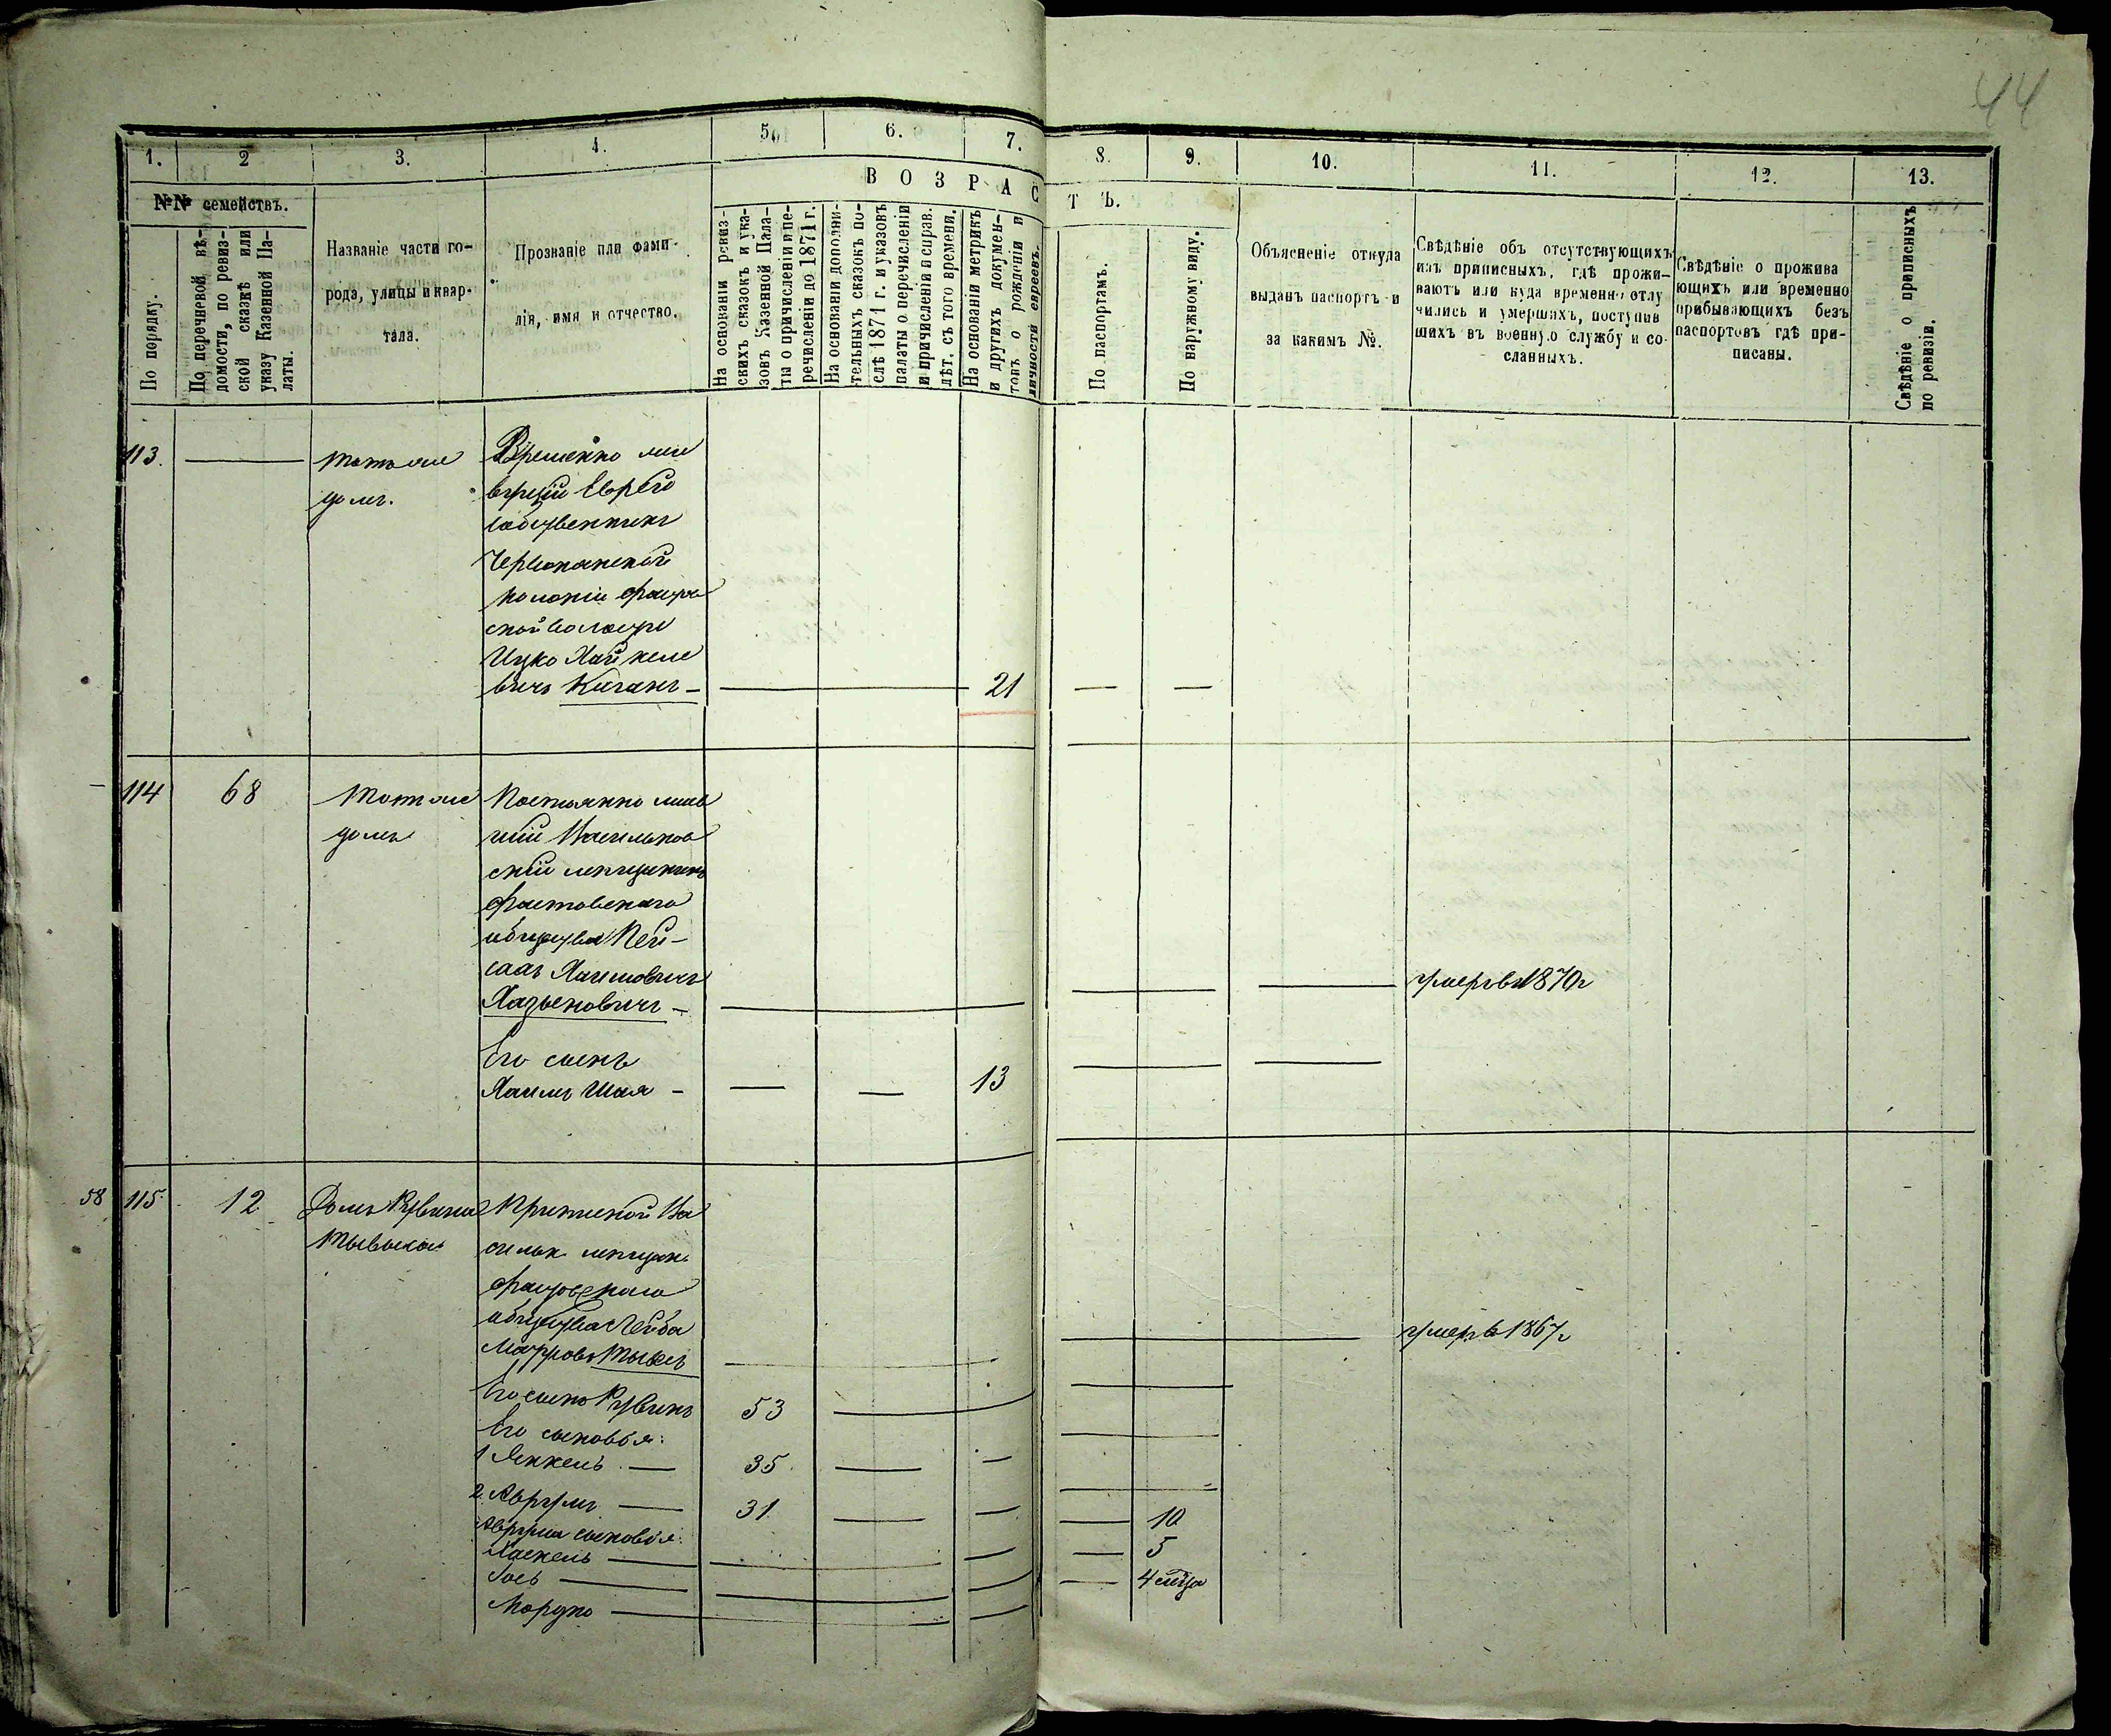 44
1. 2 3. 4. 5 6. 7. 8. 9. 10. 11. 12. 13.
№№ семействъ.
По порядку.
По перечневой вѣ-
домости, по ревиз-
ской сказкѣ или
указу Казенной Па-
латы.
Названіе части го-
рода, улицы и квар-
тала.
Прозваніе или фами-
лія, имя и отчество.
ВОЗРАСТЪ.
На основаніи ревиз-
скихъ сказокъ и ука-
зовъ Казенной Пала-
ты о причисленіи и пе-
речисленіи до 1871 г.
На основаніи дополни-
тельныхъ сказокъ по-
слѣ 1871 г. и указовъ
палаты о перечисленіи
и причисленіи и справ.
лѣт. съ того времени.
На основаніи метрикъ
и другихъ докумен-
товъ о рожденіи и
личности евреевъ.
По паспортамъ.
По наружному виду.
Объясненіе откуда
выданъ паспортъ и
за какимъ №.
Свѣдѣніе объ отсутствующихъ
изъ приписныхъ, гдѣ прожи-
ваютъ или куда временно отлу
чились и умершихъ, поступив
шихъ въ военную службу и со-
сланныхъ.
Свѣдѣніе о прожива
ющихъ или временно
прибывающихъ безъ
паспортовъ гдѣ при-
писаны.
Свѣдѣніе о приписныхъ
по ревизіи.
113.
тотъ же
домъ.
Временно жи
вущій Еврей
собственникъ
Червонской
колоніи Фастов
ской волости
Ицко Хайкеле
вичъ Каганъ
21
114
68
Тотъ же
домъ
Постоянно живу
щій Васильков
скій мещанинъ
Фастовскаго
общества Пей-
сахъ Хаимовичъ
Хазеновичъ
умеръ въ 1870 г
Его сынъ
Хаимъ Шая
13
58
115.
12
Домъ Рувина
Приписной Ва
сильк. мещан.
Фастовскаго
общества Лейба
умеръ въ 1867 г
Его сынъ Рувинъ 53
Его сыновья:
1 Янкель 35
2. Аврумъ 31
Аврума сыновья:
Хаскель 10
5
Мордко 4 мѣсца